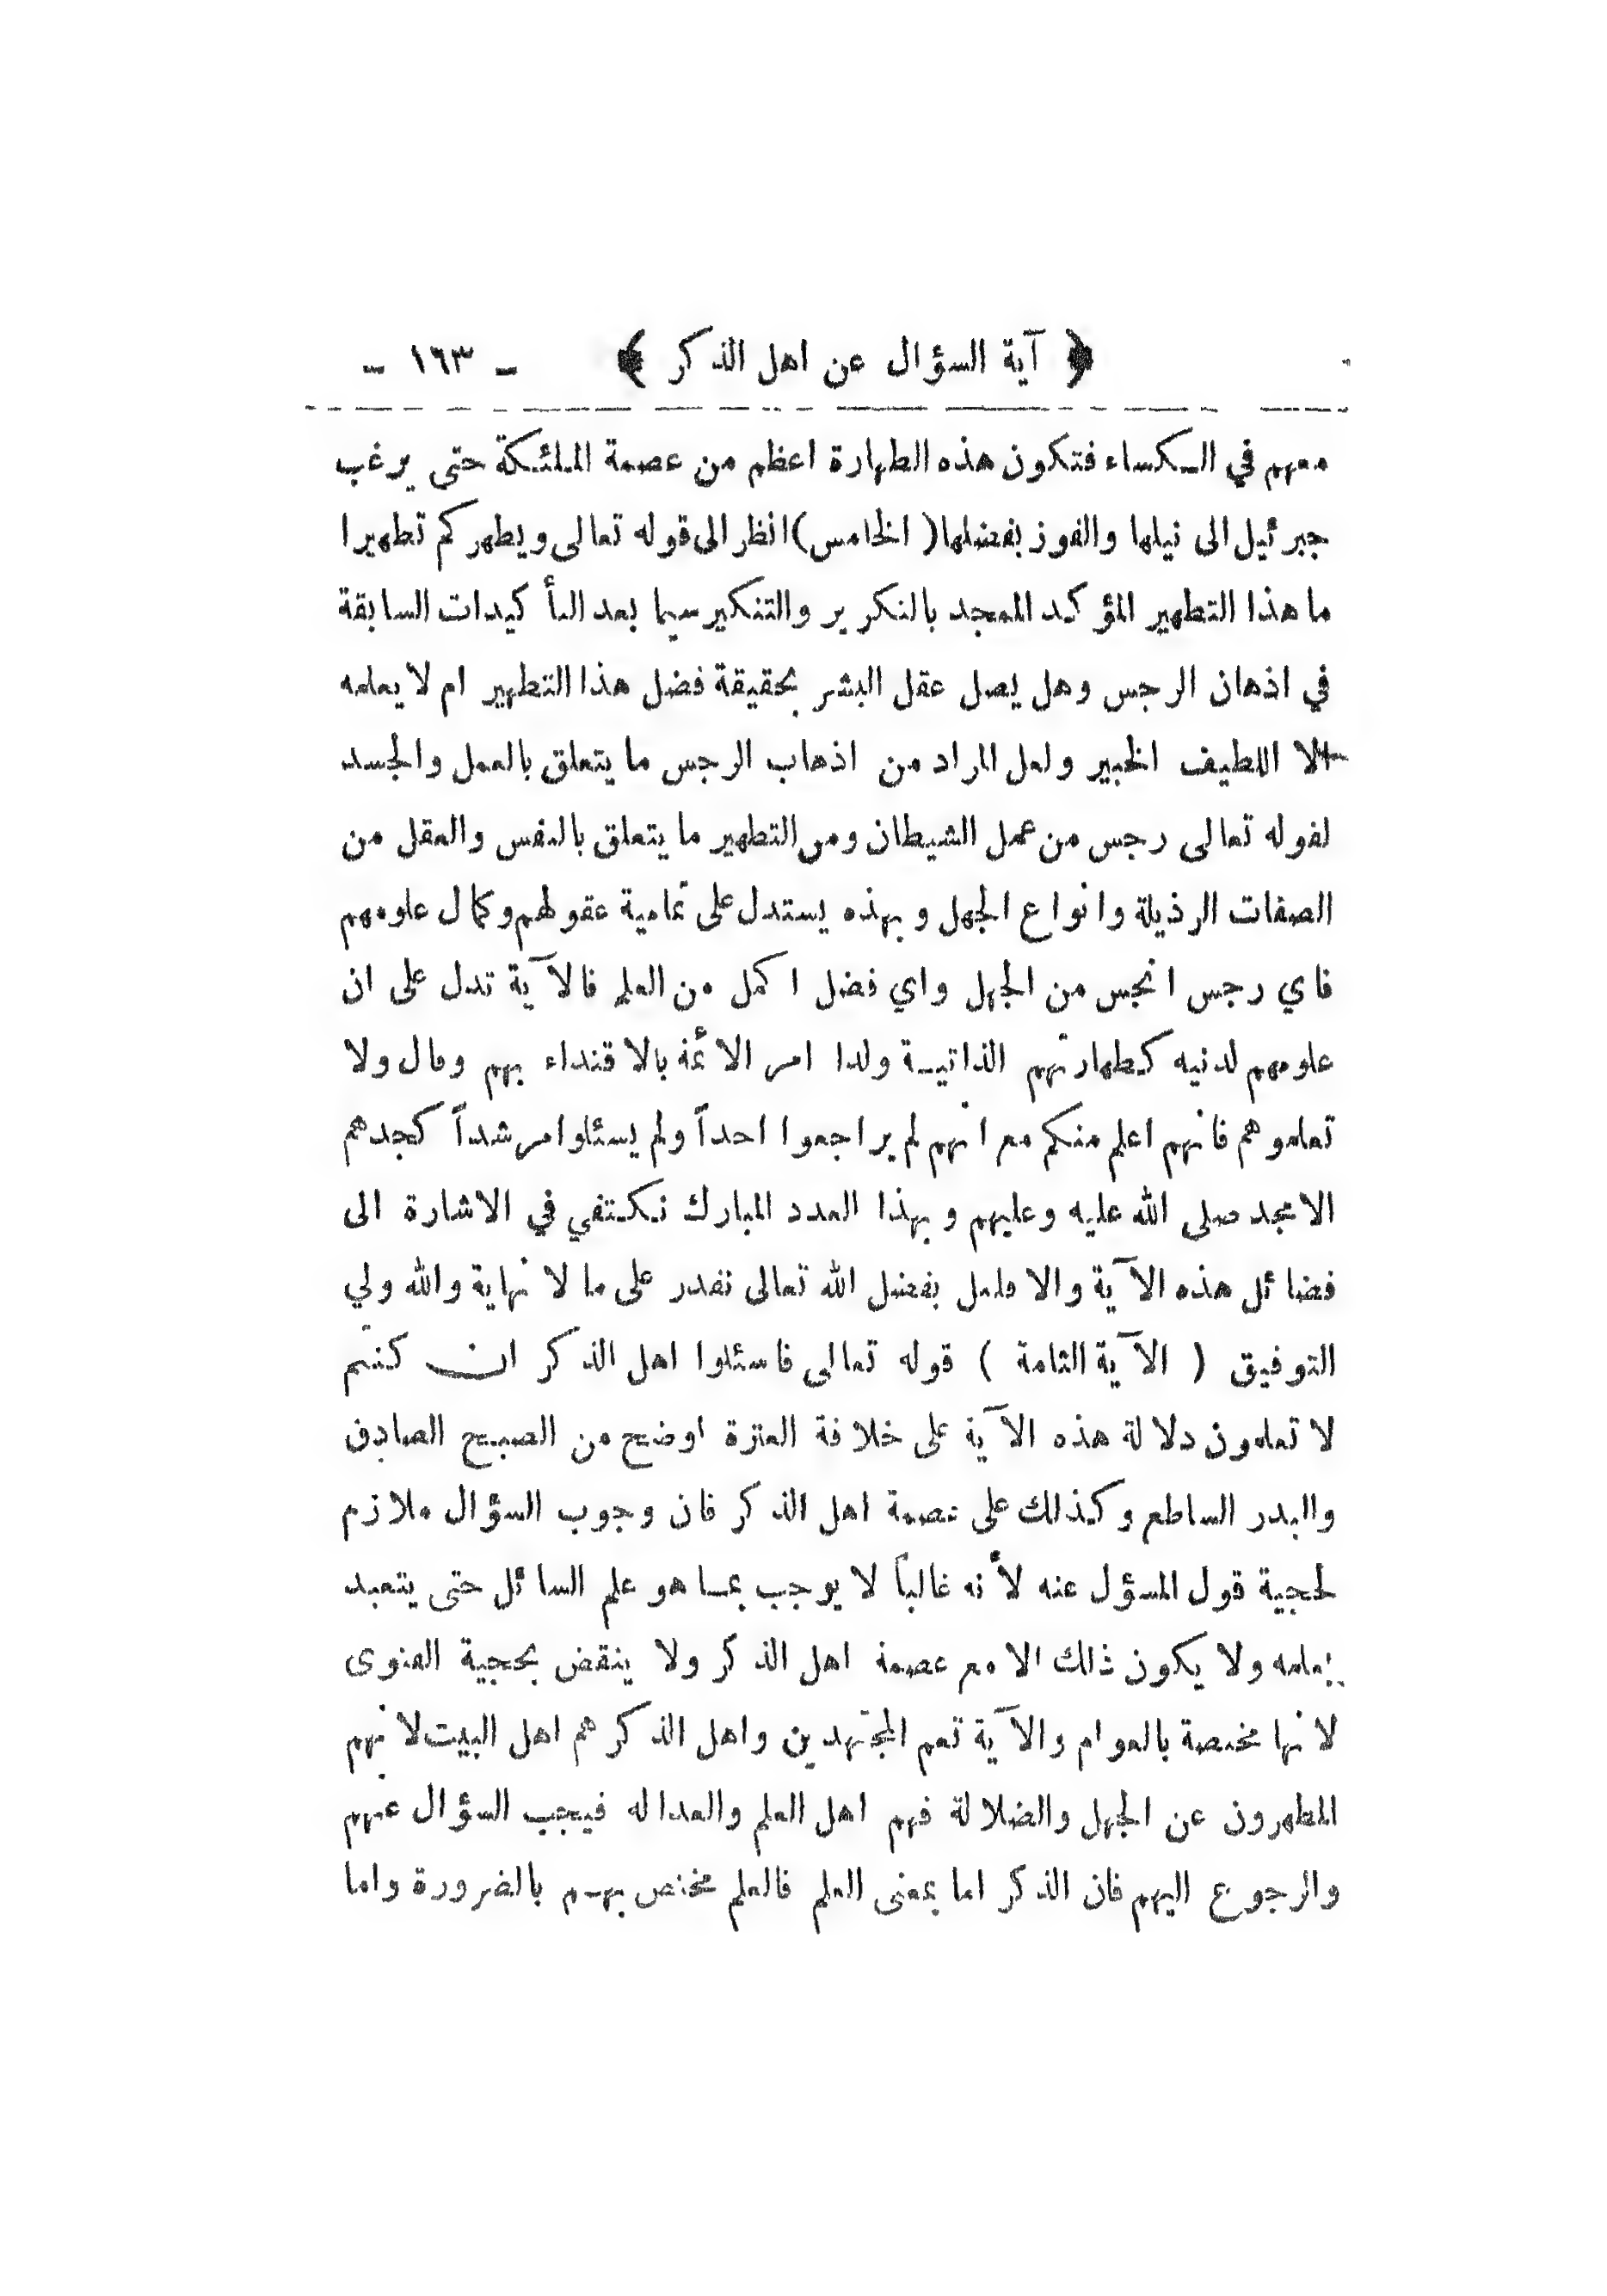 ﴿ آية السؤال عن اهل الذكر ﴾ – ١٦٣ –
معهم في الكساء فتكون هذه الطهارة اعظم من عصمة الملئكة حتى يرغب
جبرئيل الى نيلها والفوز بفضلها ( الخامس ) انظر الى قوله تعالى ويطهركم تطهيرا
ما هذا التطهير المؤكد الممجد بالتكرير والتنكير سيما بعد التأكيدات السابقة
في اذهان الرجس وهل يصل عقل البشر بحقيقة فضل هذا التطهير ام لا يعلمه
الا اللطيف الخبير ولعل المراد من اذهاب الرجس ما يتعلق بالعمل والجسد
لقوله تعالى رجس من عمل الشيطان ومن التطهير ما يتعلق بالنفس والعقل من
الصفات الرذيلة وانواع الجهل وبهذه يستدل على تمامية عقولهم وكمال علومهم
فاي رجس انجس من الجهل واي فضل اكمل من العلم فالآية تدل على ان
علومهم لدنيه كطهارتهم الذاتيـة ولذا امر الائمة بالاقتداء بهم وقال ولا
تعلموهم فانهم اعلم منكم مع انهم لم يراجعوا احداً ولم يسئلوا مرشداً كجدهم
الامجد صلى الله عليه وعليهم وبهذا العدد المبارك نكتفي في الاشارة الى
فضائل هذه الآية والا فلعل بفضل الله تعالى نقدر على ما لا نهاية والله ولي
التوفيق ( الآية الثامة ) قوله تعالى فاسئلوا اهل الذكر ان كنتم
لا تعلمون دلالة هذه الآية على خلافة العترة اوضح من الصبح الصادق
والبدر الساطع وكذلك على عصمة اهل الذكر فان وجوب السؤال ملازم
لحجية قول المسؤل عنه لأنه غالباً لا يوجب بمـا هو علم السائل حتى يتعبد
بعلمه ولا يكون ذلك الا مع عصمة اهل الذكر ولا ينقض بحجية الفتوى
لانها مختصة بالعوام والآية تعم المجتهدين واهل الذكر هم اهل البيت لانهم
المطهرون عن الجهل والضلالة فهم اهل العلم والعداله فيجب السؤال عنهم
والرجوع اليهم فان الذكر اما بمعنى العلم فالعلم مختص بهـم بالضرورة واما